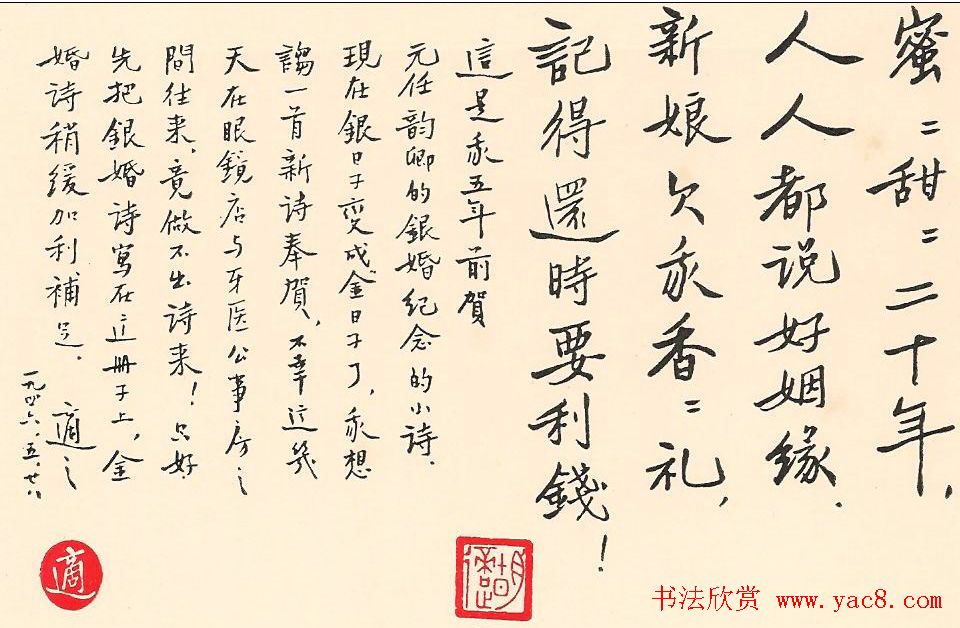 蜜〻甜〻二十年，
人人都说好姻缘．
新娘欠我香〻礼，
記得還時要利錢！
這是我五年前賀
元任韵卿的銀婚纪念的小诗．
現在銀日子变成金日子了，我想
謅一首新诗奉賀，不幸这幾
天在眼鏡店与牙医公事房之
間往来，竟做不出诗来！只好
先把銀婚诗寫在这册子上，金
婚诗稍缓加利補足．
適之
一九四六．五．廿八
適
胡適
书法欣赏 www.yac8.com